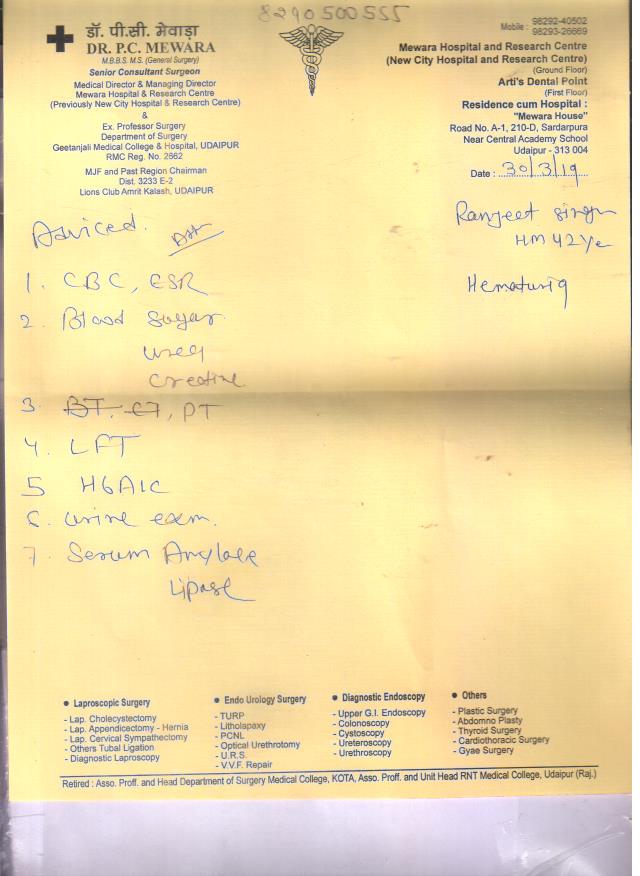 8290500555
डॉ. पी.सी. मेवाड़ा
DR. P.C. MEWARA
M.B.B.S. M.S. (General Surgery)
Senior Consultant Surgeon
Medical Director & Managing Director
Mewara Hospital & Research Centre
(Previously New City Hospital & Research Centre)
&
Ex. Professor Surgery
Department of Surgery
Geetanjali Medical College & Hospital, UDAIPUR
RMC Reg. No. 2662
MJF and Past Region Chairman
Dist. 3233 E-2
Lions Club Amrit Kalash, UDAIPUR
Mobile : 98292-40502
98293-26669
Mewara Hospital and Research Centre
(New City Hospital and Research Centre)
(Ground Floor)
Arti's Dental Point
(First Floor)
Residence cum Hospital :
"Mewara House"
Road No. A-1, 210-D, Sardarpura
Near Central Academy School
Udaipur - 313 004
Date : 30/3/19
Ranjeet Singh
HM 42Ye
Hematuria
Adviced.
1. CBC, ESR
2. Blood Sugar.
urea
Creatine
3. BT. CT, PT
4. LFT
5 HbA1C
6. urine exam.
7. Serum Amylase
Lipase
Laproscopic Surgery
- Lap. Cholecystectomy
- Lap. Appendicectomy - Hernia
- Lap. Cervical Sympathectomy
- Others Tubal Ligation
- Diagnostic Laproscopy
Endo Urology Surgery
- TURP
- Litholapaxy
- PCNL
- Optical Urethrotomy
- U.R.S.
- V.V.F. Repair
Diagnostic Endoscopy
- Upper G.I. Endoscopy
- Colonoscopy
- Cystoscopy
- Ureteroscopy
- Urethroscopy
Others
- Plastic Surgery
- Abdomno Plasty
- Thyroid Surgery
- Cardiothoracic Surgery
- Gyae Surgery
Retired : Asso. Proff. and Head Department of Surgery Medical College, KOTA, Asso. Proff. and Unit Head RNT Medical College, Udaipur (Raj.)